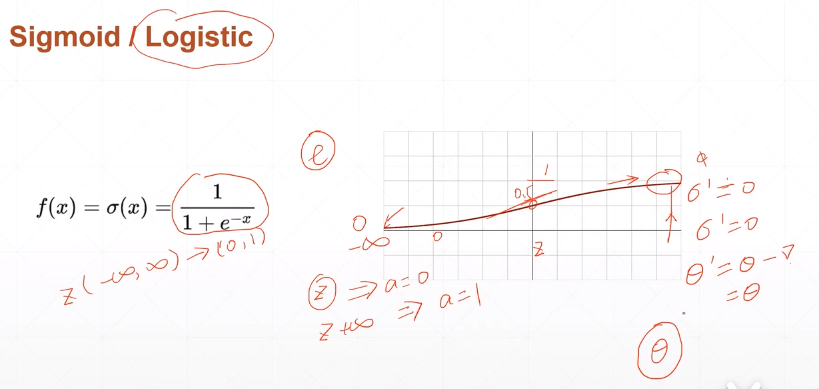 Sigmoid / Logistic
e
f(x) = σ(x) = 1 / (1 + e^{-x})
z(-∞, ∞) → (0,1)
1
0.5
0
-∞
0
z
σ' ≐ 0
σ' = 0
θ' = θ - ∇
= θ
z ⇒ a=0
z +∞ ⇒ a=1
θ